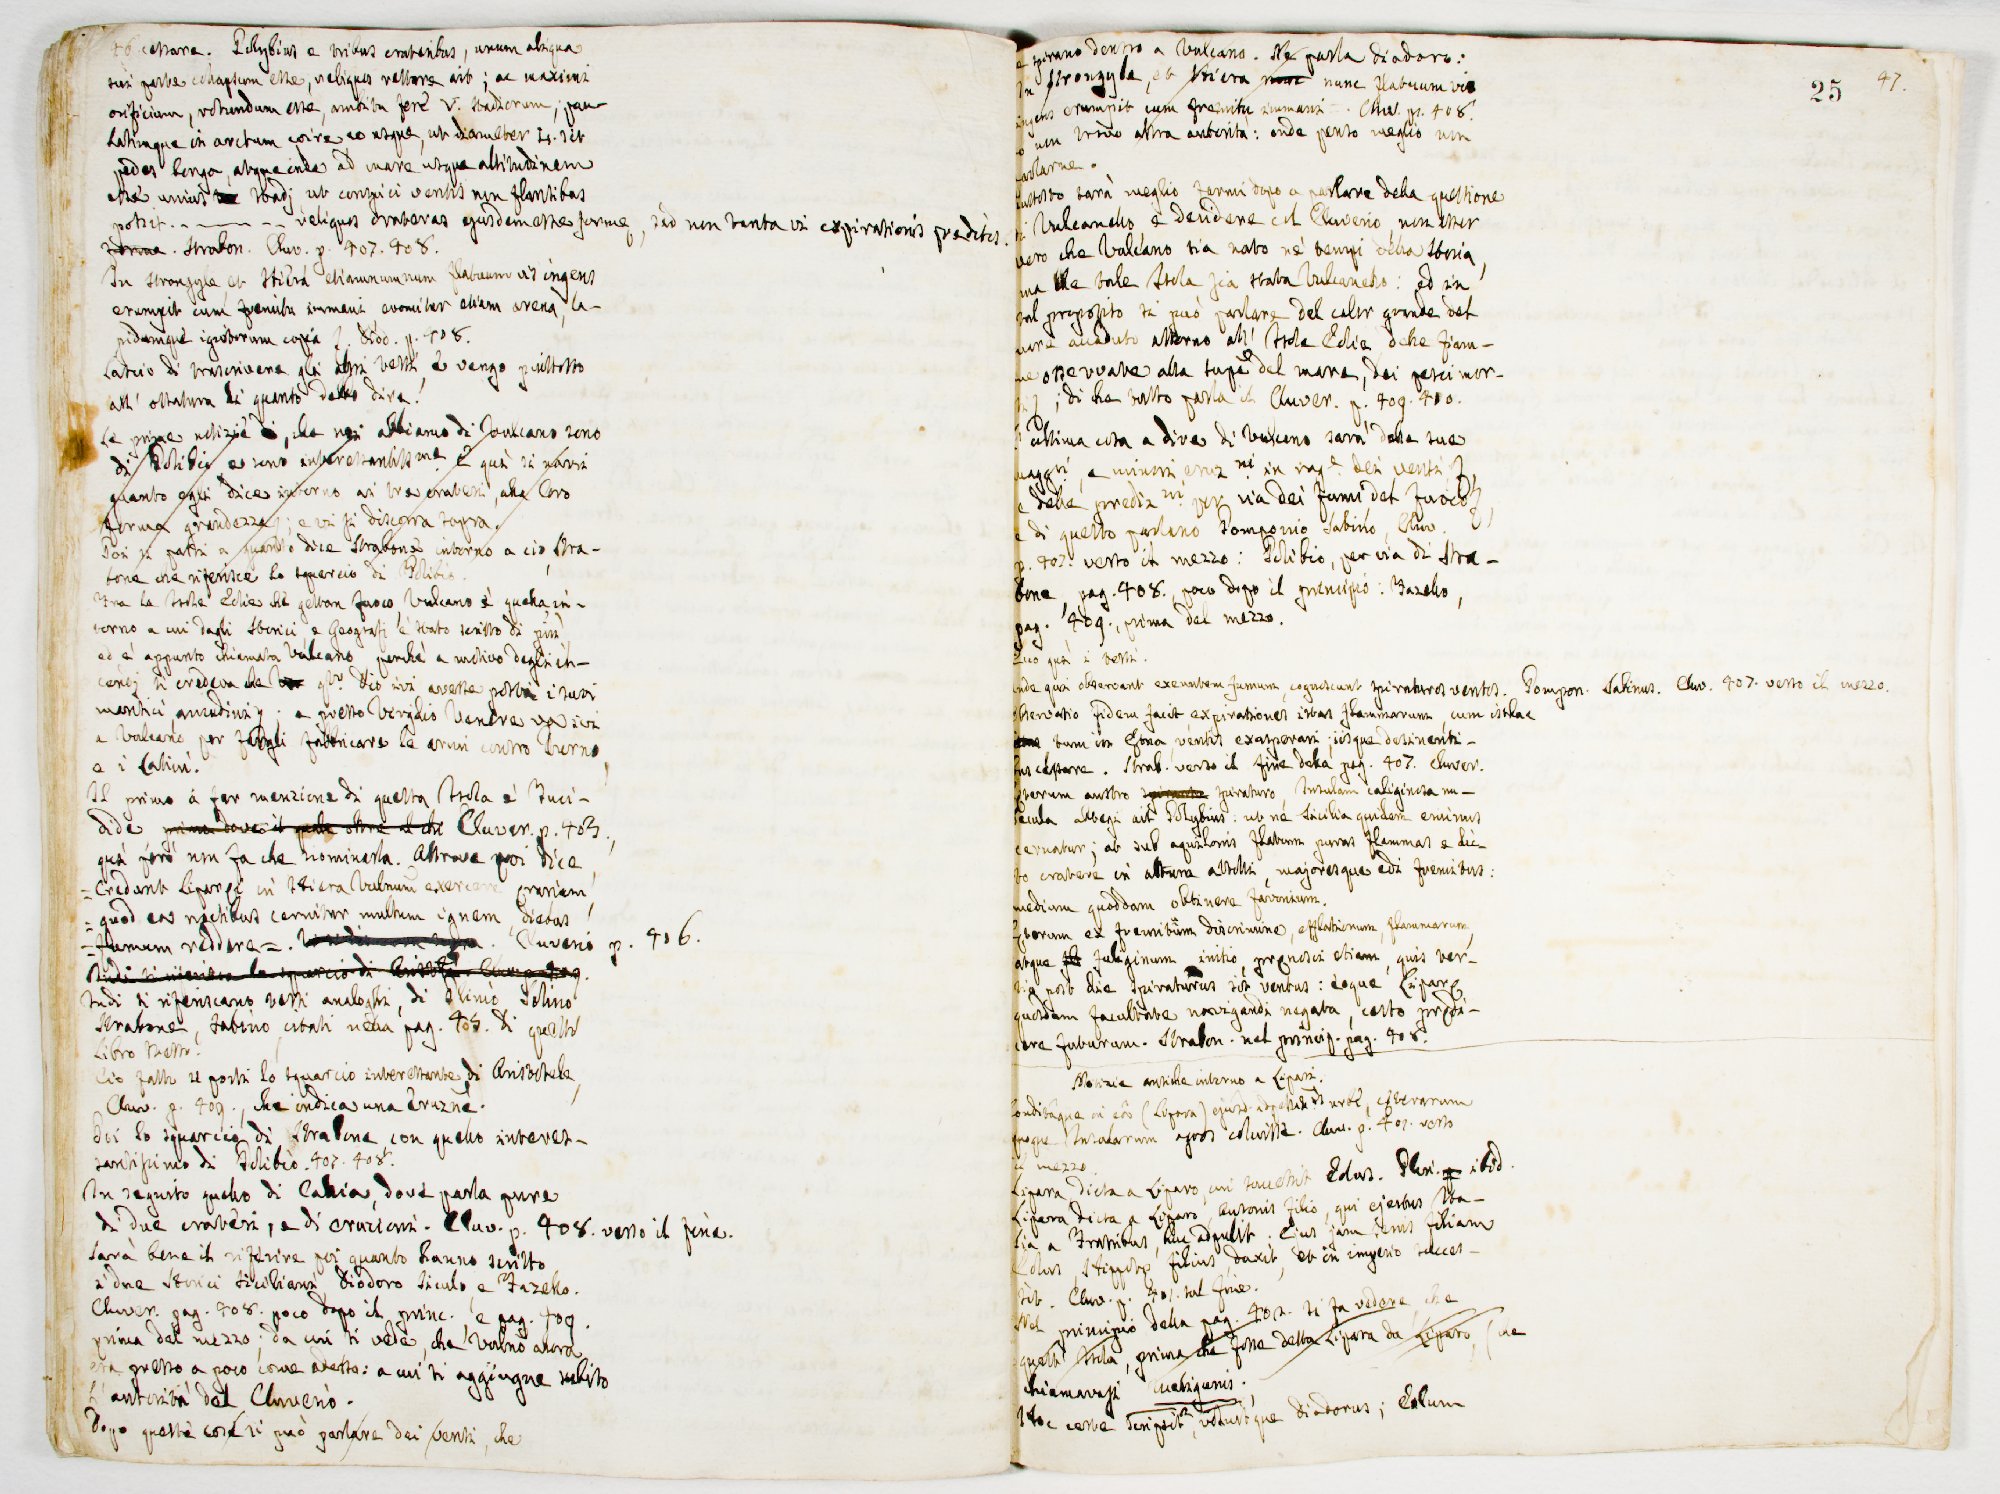 46 cessare. Polybius e tribus crateribus, unum aliqua
sui parte collapsum esse, reliquos restare ait; ac maximi
orificium, rotundum esse, ambitu ferè V. stadiorum; pau-
latimque in arctum coire eo usque, ut diameter L. sit
pedes longa, atque inde ad mare usque altitudinem
esse unius stadj ut conspici ventis non flantibus
possit. - - - - reliquos crateras ejusdem esse formę, sed non tanta vi expirationis praeditos.
forma. Strabon. Cluv. p. 407. 408.
In Strongyle et Hiera etiamnumnum flatuum vis ingens
erumpit cum fremitu immani evomitur etiam arena, la-
pidumque ignitorum copia. Diod. p. 408.
Lascio di trascrivere gli altri testi e vengo piuttosto
all' ossatura di quanto debbo dire.
Le prime notizie, che noi abbiamo di Vulcano sono
di Polibio, e sono interessantissme. E quì si narri
quanto egli dice intorno ai tre crateri, alla loro
forma grandezza; e vi si discorra sopra.
Poi si passi a quanto dice Strabone intorno a ciò, Stra-
bone che riferisce lo squarcio di Polibio.
Fra le Isole Eolie che gettan fuoco, Vulcano è quella, in-
torno a cui dagli Storici, e Geografi è stato scritto di più
ed è appunto chiamata Vulcano perchè a motivo degli in-
cendj si credeva che qto Dio ivi avesse posti i suoi
mantici, ancudini; e presso Vergilio Venere va ivi
a Vulcano per fargli fabbricare le armi contro Turno,
e i Latini.
Il primo a far menzione di questa Isola è Tuci-
dide prima dove il quale oltre al che Cluver. p. 405.,
quì però non fa che nominarla. Altrove poi dice,
= Credunt Liparęi in Hiera Vulcnum exercere ęrariam,
= quod eas noctibus cernitur multum ignem, diebus
= fumum reddere =. Cluverio p. 406.
Indi si riferisca lo squarcio di Aristot. Cluv. p. 409.
Indi si riferiscano testi analoghi, di Plinio, Solino
Strabone, Sabino, citati nella pag. 407. di questo
libro stesso.
Ciò fatto si porti lo squarcio interessante di Aristotele,
Cluv. p. 409., che indica una eruzne.
Poi lo squarcio di Strabone con quello interes-
santissimo di Polibio. 407. 408.
In seguito quello di Callia, dove parla pure
di due crateri, e di eruzioni. Cluv. p. 408. verso il fine.
Sarà bene il riferire poi quanto hanno scritto
i due Storici Siciliani Diodoro Siculo, e Fazello.
Cluver. pag. 408. poco dopo il princ. e pag. 409.
prima del mezzo; da cui si vede, che Vulcno allora
era presso a poco come adesso: a cui si aggiugne subito
l' autorità del Cluverio.
Dopo queste cose si può parlare dei venti, che
spirano dentro a Vulcano. Ne parla Diodoro:
In Strongyle, et Hiera nunc nunc flatuum vis
ingens erumpit cum fremitu immani. Cluv. p. 408.
non trovo altra autorità: onde penso meglio non
parlarne.
Piuttosto sarà meglio farmi dopo a parlare della questione
di Vulcanello, e decidere col Cluverio, non esser
vero che Vulcano sia nato ne' tempi della Storia,
ma che tale Isola sia stata Vulcanello: ed in
tal proposito si può parlare del calor grande del
mare accaduto attorno all' Isole Eolie, delle fiam-
me osservate alla supe del mare, dei pesci mor-
ti; di che tutto parla il Cluver. p. 409. 410.
L' ultima cosa a dire di Vulcano sarà delle sue
maggri, e minori eruzni in ragne dei venti,
e delle predizni per via dei fumi del fuoco,
e di questo parlano Pomponio Sabino, Cluv.
p. 407. verso il mezzo: Polibio, per via di Stra-
bone, pag. 408., poco dopo il principio: Fazello,
pag. 409., prima del mezzo.
Ecco quì i testi.
Unde qui observant exeuntem fumum, cognoscunt spiraturos ventos. Pompon. Sabinus. Cluv. 407. verso il mezzo.
Observatio fidem facit expirationes istas flammarum, cum isthac
tum in Etna, ventis exasperari, iisque desinenti-
bus cessare. Strab. verso il fine della pag. 407. Cluver.
Iterum austro spirante spiraturo Insulam caliginosa nu-
becula obtegi ait Polybius: ut ne Sicilia quidem eminus
cernatur; at sub aquilonis flatum puras flammas e dic-
to cratere in altum attolli, majoresque edi fremitus:
medium quoddam obtinere favonium.
Iterum ex fremituum discrimine, efflationum, flammarum,
atque fuliginum initio, pręnosci etiam, quis ter-
tia post die spiraturus sit ventus: eoque Liparę
quosdam facultate navigandi negata, certo prędi-
cere futurum. Strabon. nel princip. pag. 408.
Notizie antiche intorno a Lipari.
Conditaque in eâ (Lipara) ejusd. urbe, ceterarum
quoque Insularum agros coluisse. Cluv. p. 401. verso
il mezzo.
Lipara dicta a Liparo, cui successit Eolus. Plin. ibid.
Lipara dicta a Liparo, Ausonis filio, qui ejectus Ita-
lia a Fratribus, huc adpulit. Ejus jam senis filiam
Eolus, Hippotę filius, duxit, et in imperio succes-
sit. Cluv. p. 401. sul fine.
Nel principio della pag. 402. si fa vedere, che
quest' Isola, prima che fosse detta Lipara da Liparo, (che
chiamavasi Meligunis.
Hoc certe scripsit, voluitque Diodorus; Eolum
25 47.